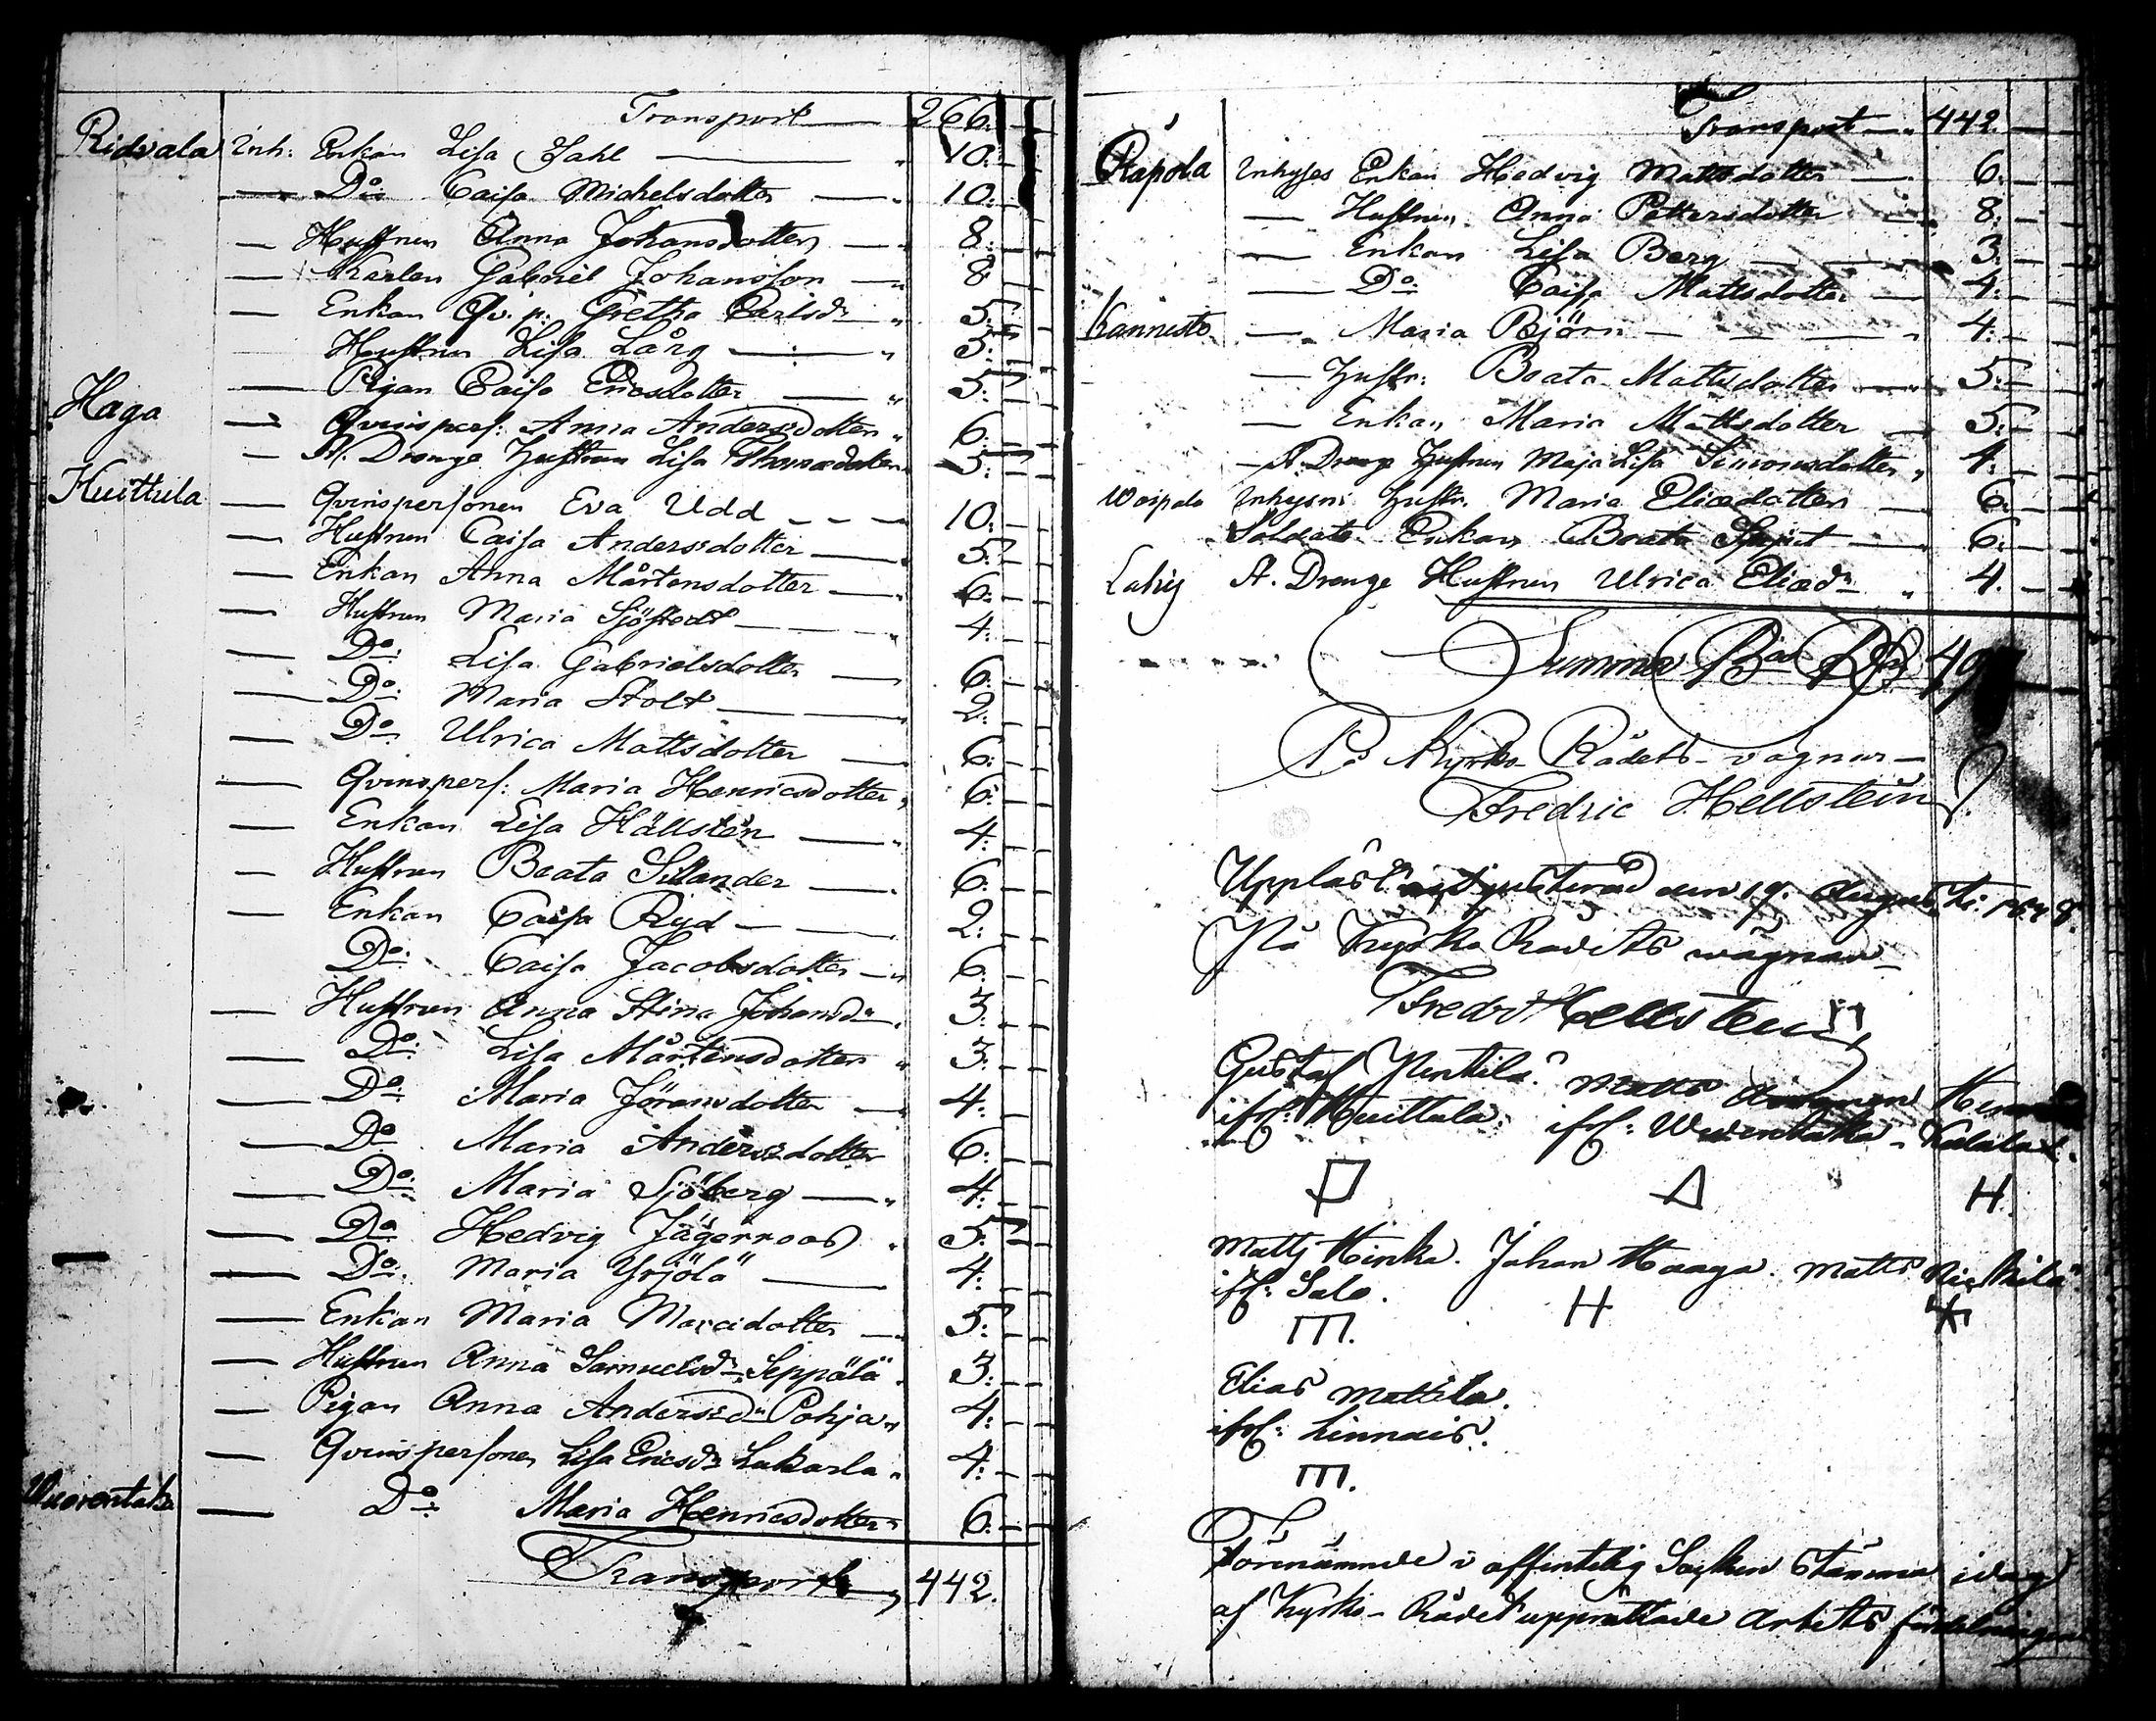 Transport 266.
Ridvala Inh: Enkan Lisa Jahl 10:
Do: Caisa Michelsdotter 10:
Hustrun Anna Johansdotter 8:
Karlen Gabriel Johansson 8
Enkan Qv. p: Gretha Carlsdr 5:
Hustrun Lisa Lårg 5:
Pigan Caisa Ericsdotter 5:
Haga Qvinspers: Anna Andersdotter 6:
A. Drengs Hustrun Lisa Thomasdotter 5:
Huittula Qvinspersonen Eva Udd 10:
Hustrun Caisa Andersdotter 5:
Enkan Anna Mårtensdotter 6:
Hustrun Maria Sjöstedt 4:
Do: Lisa Gabrielsdotter 6:
Do: Maria Stolt 2:
Do: Ulrica Mattsdotter 6:
Qvinspers: Maria Henricsdotter 6:
Enkan Lisa Hällstén 4:
Hustrun Beata Sillander 6:
Enkan Caisa Ryd 2:
Do: Caisa Jacobsdotter 6:
Hustrun Anna Stina Johansdr 3:
Do: Lisa Mårtensdotter 3:
Do: Maria Jöransdotter 4:
Do: Maria Andersdotter 6:
Do: Maria Sjöberg 4:
Do: Hedvig Jägerroos 5:
Do: Maria Yrjölä 4:
Enkan Maria Marcidotter 5:
Hustrun Anna Samuelsdr Seppälä 3:
Pigan Anna Andersdr Pohja 4:
Qvinspersonen Lisa Ericsdr Lukarla 4:
Wuorentaka Do: Maria Henricsdotter 6:
Transport 442.
Transport 442.
Rapola Inhyses Enkan Hedvig Mattsdotter 6:
Hustrun Anna Pettersdotter 8:
Enkan Lisa Berg 3:
Do: Caisa Mattsdotter 4:
Kannisto Maria Björn 4:
Hustr: Beata Mattsdotter 5:
Enkan Maria Mattsdotter 5:
A. Drengs Hustrun Maja Lisa Simonsdotter 4:
Woipala Inhyses Hustr. Maria Eliædotter 6:
Soldats Enkan Beata Spjut 6:
Lahis A. Drengs Hustrun Ulrica Eliædr 4.
Summa Bco Rbr 49
På Kyrko Rådets vägnar
Fredric Hellstein
Uppläst och justerad den 19. Augusti
På Kyrko Rådets wägnar
Fredr Hellstein
Gustaf Pentilä Matts
ifr: Huittula. ifr: Wuorentaka Kalala
H.
Matts Hinka. Johan Haaga. Matts
ifr: Salo. H
III.
Elias Mattila.
ifr: Linnais.
III.
Förenämnde i offentelig Socken Stämma idag
af Kyrko-Rådet upprättade arbets fördelningen